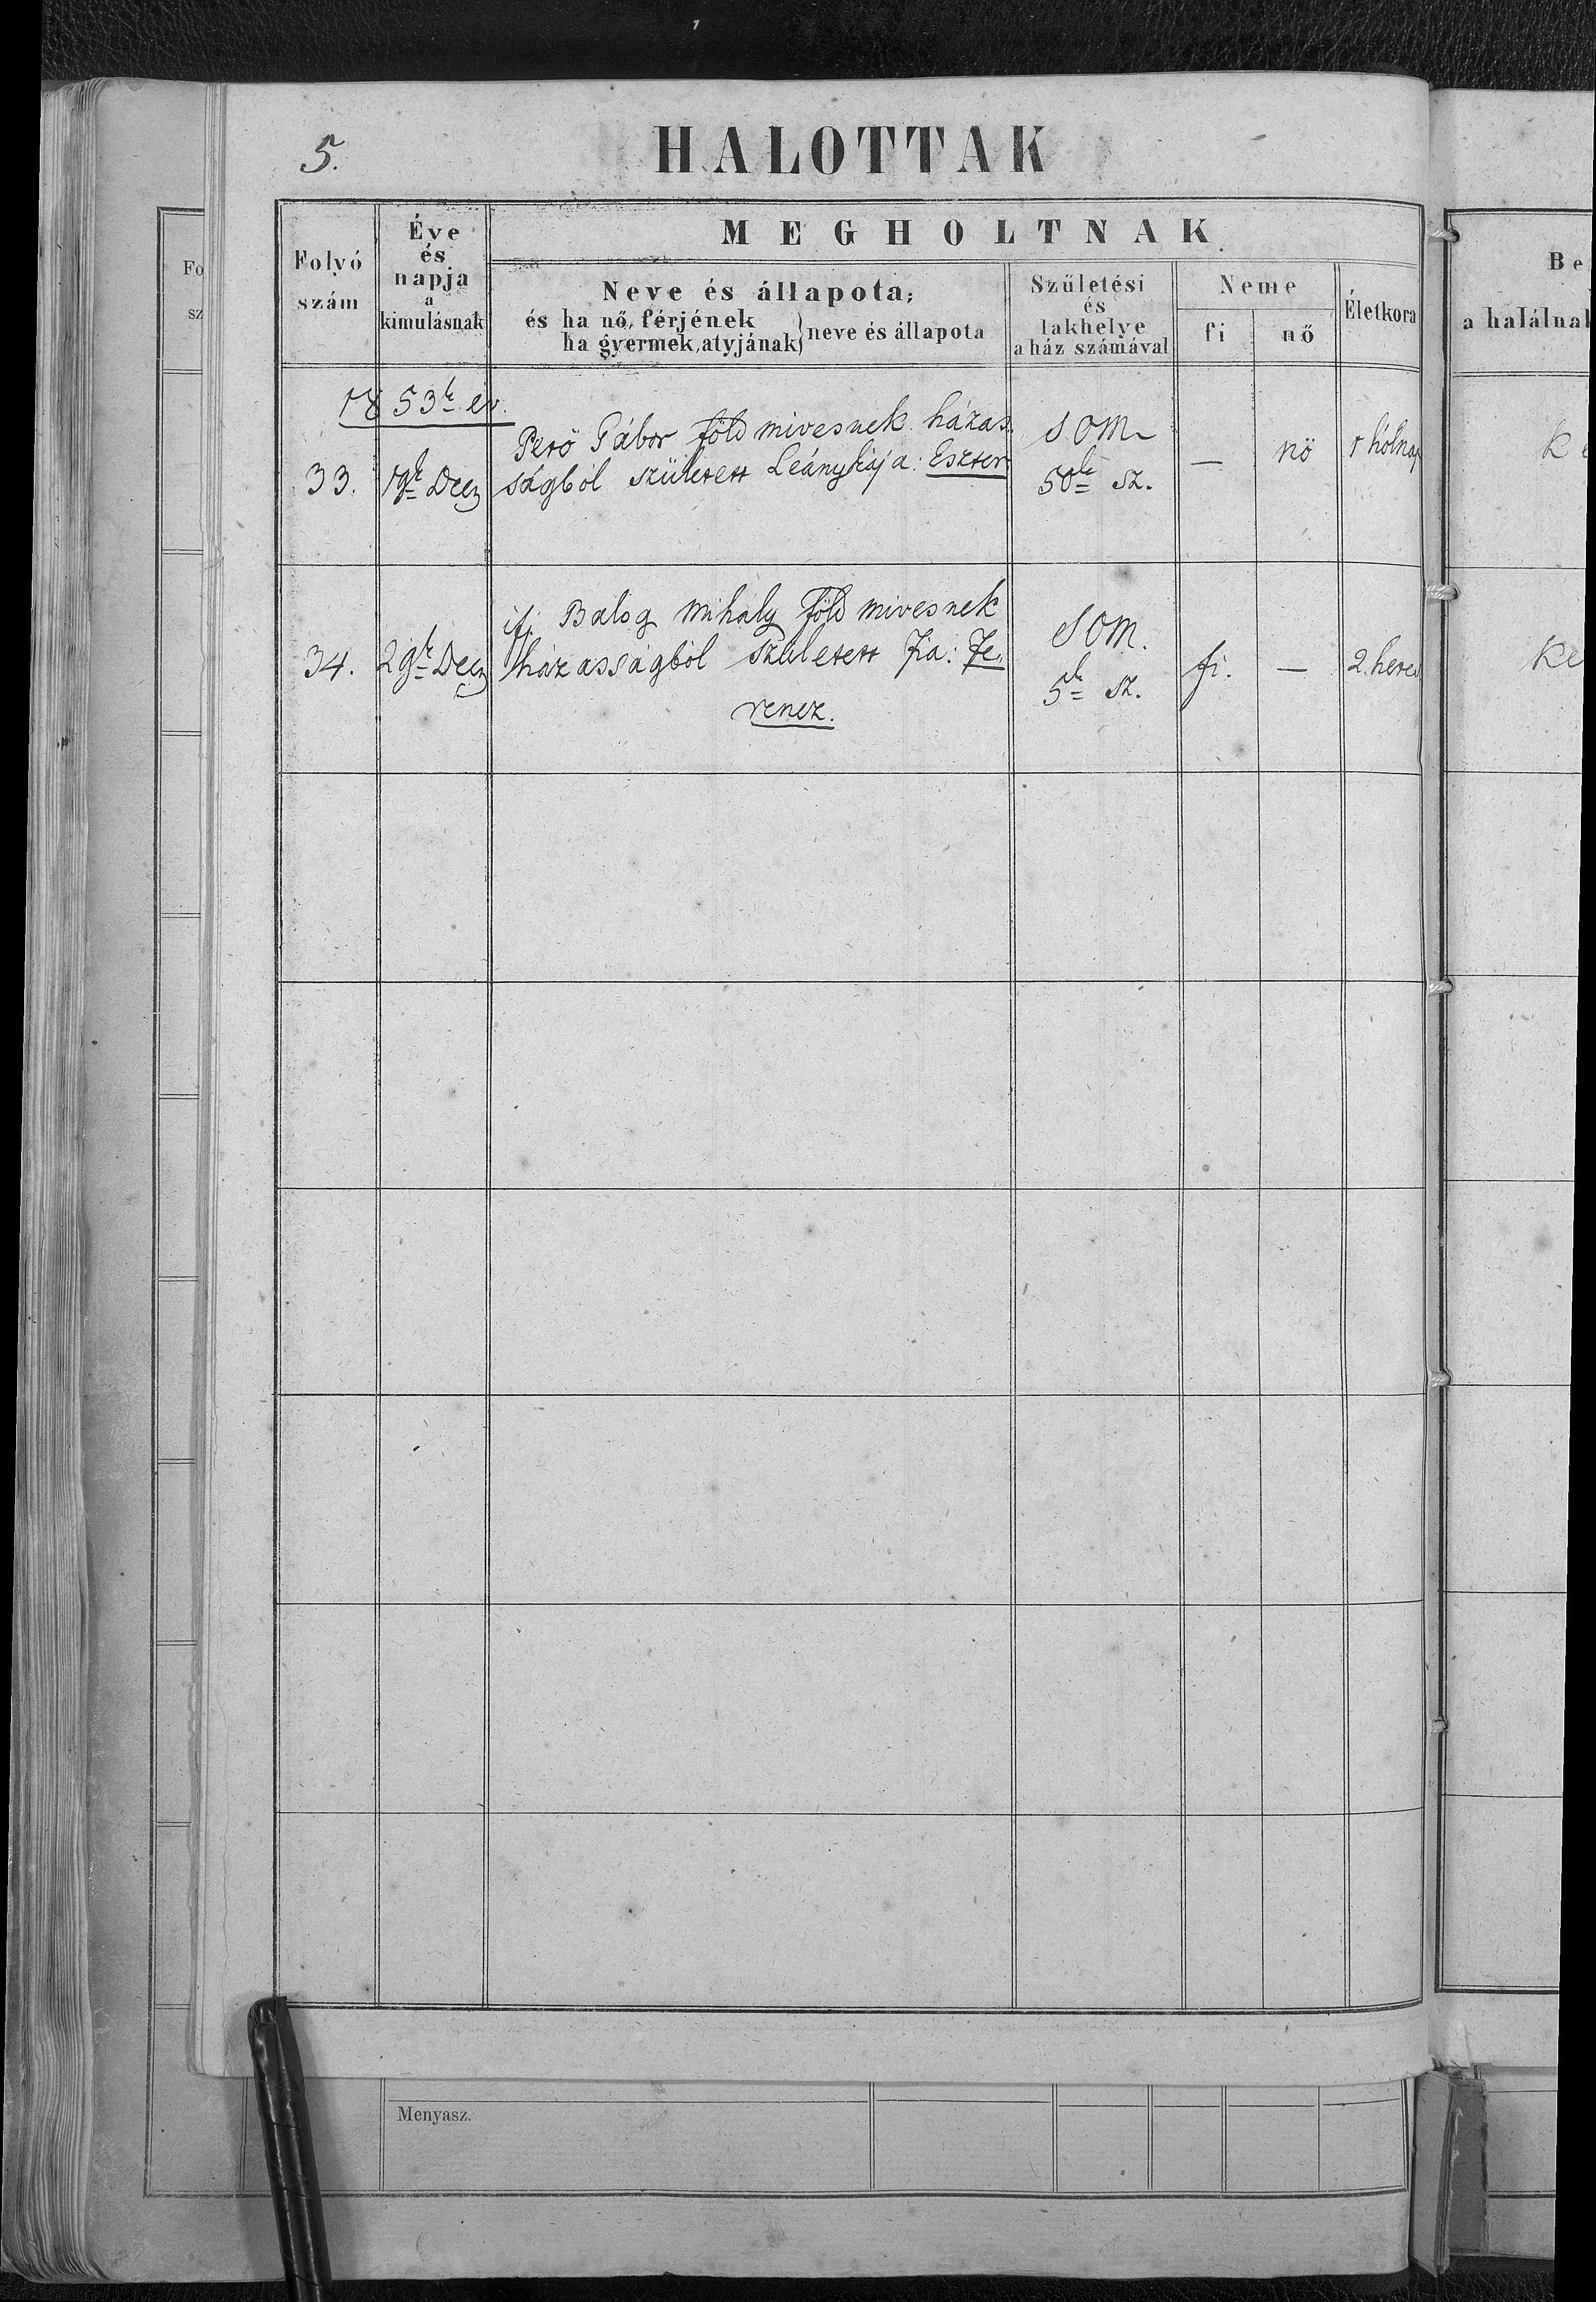 5.
HALOTTAK
Folyó
szám
Éve
és
napja
a
kimulásnak
MEGHOLTNAK
Neve és állapota;
és ha nő, férjének
ha gyermek, atyjának
} neve és állapota
Születési
és
lakhelye
a ház számával
Neme
fi
nő
Életkora
1853k év.
33.
19k Decz
Pető Gábor föld mivesnek házas-
ságból született Leánykája: Eszter
SOM
50k sz.
—
nö
1 hólnap
34.
29k Decz
ifj. Balog Mihály föld mivesnek
házasságból született Fia: Fe-
rencz.
SOM.
5k sz.
fi.
—
2. hetes
Fo
sz
Be
a halálnak
K
Ke
Menyasz.